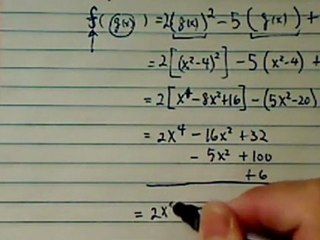 f(g(x)) = 2(g(x))² - 5(g(x)) +
= 2[(x²-4)²] - 5(x²-4) +
= 2[x⁴-8x²+16] - (5x²-20)
= 2x⁴ - 16x² + 32
- 5x² + 100
+6
= 2x⁴